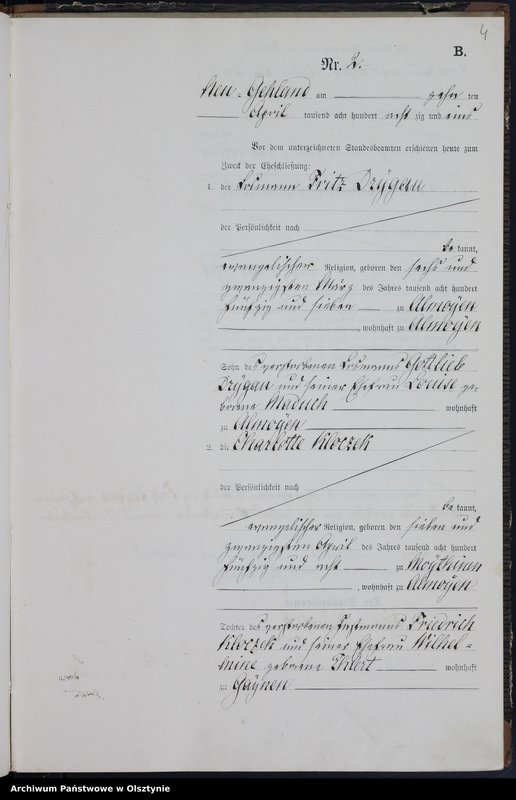 4
B.
Nr. 2.
Neu-Gehland am zehn ten
April tausend acht hundert acht zig und eins
Vor dem unterzeichneten Standesbeamten erschienen heute zum
Zweck der Eheschließung:
1. der Losmann Fritz Drygau
der Persönlichkeit nach
be kannt,
evangelischer Religion, geboren den sechs und
zwanzigsten März des Jahres tausend acht hundert
fünfzig und sieben zu Almoyen
, wohnhaft zu Almoyen
Sohn des verstorbenen Losmanns Gottlieb
Drygau und seiner Ehefrau Louise ge-
borene Maduch wohnhaft
zu Almoyen
2. die Charlotte Kloczek
der Persönlichkeit nach
be kannt,
evangelischer Religion, geboren den sieben und
zwanzigsten April des Jahres tausend acht hundert
fünfzig und acht zu Moythienen
, wohnhaft zu Almoyen
Tochter des verstorbenen Friedrich
Kloczek und seiner Ehefrau Wilhel-
mine geborene Ehlert wohnhaft
zu Gaynen
Archiwum Państwowe w Olsztynie